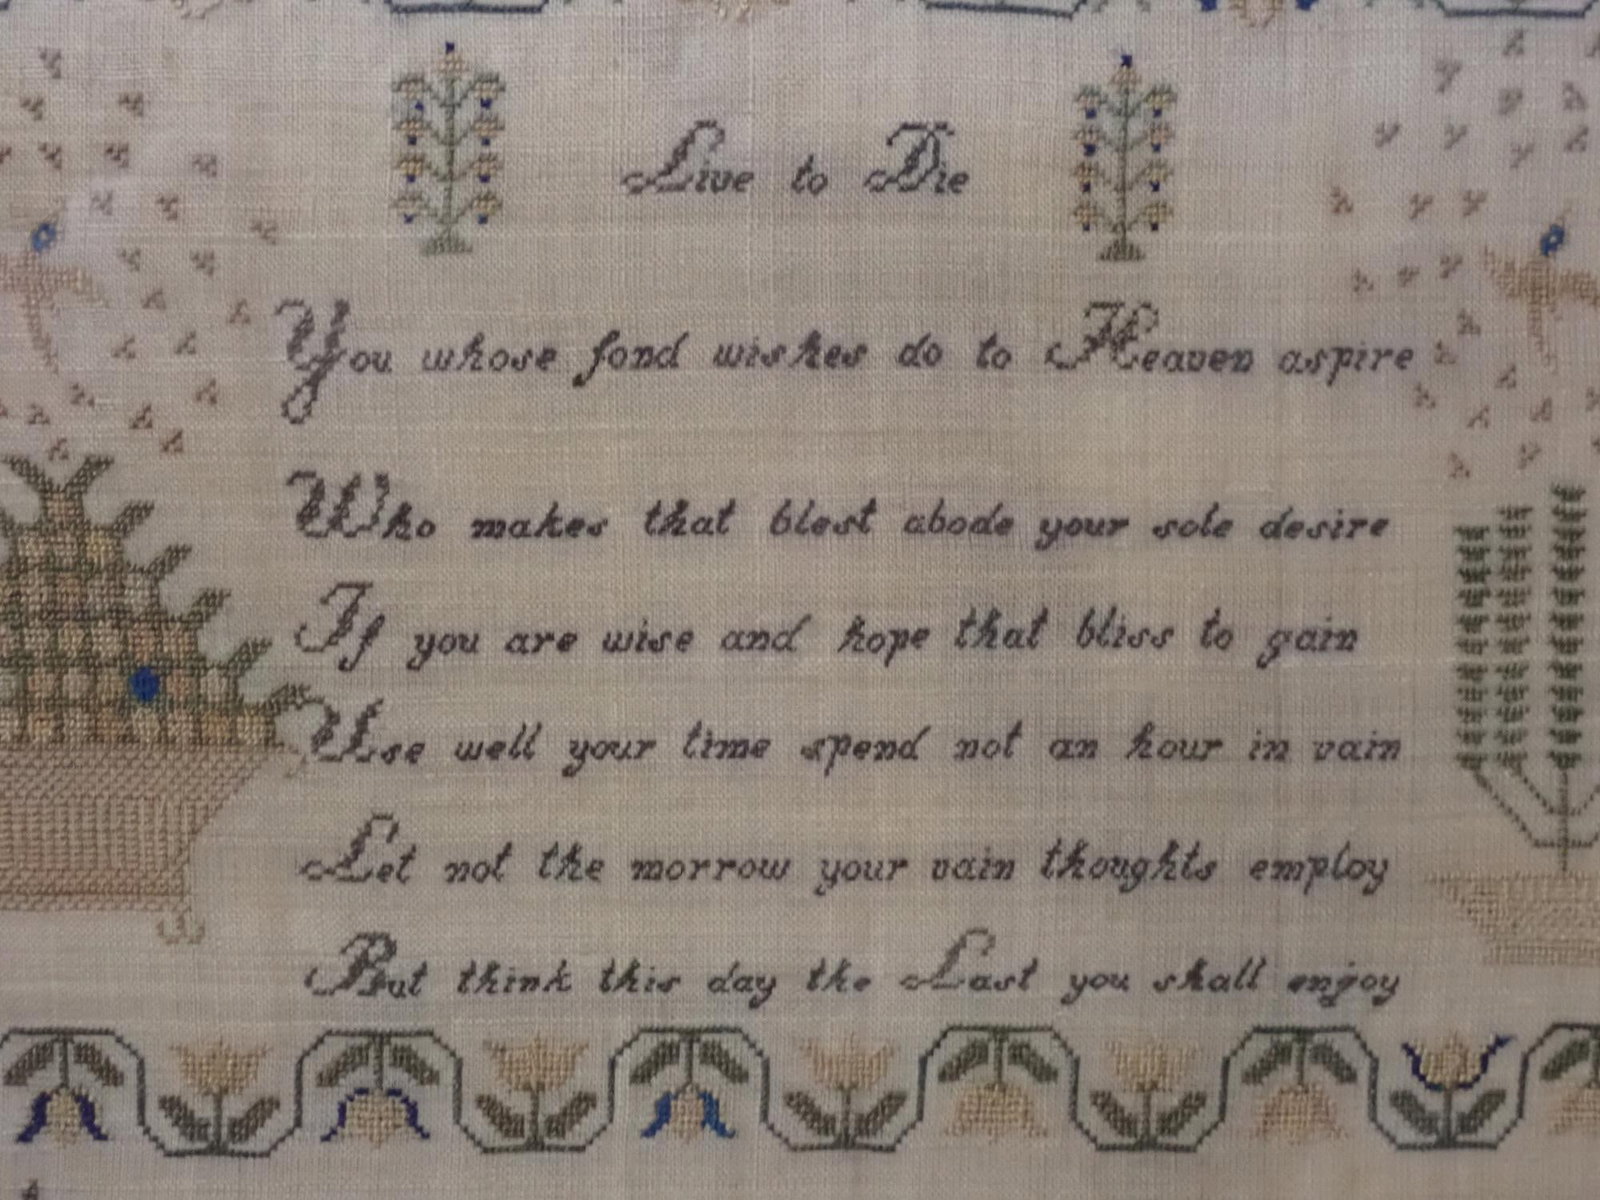 Live to Die
You whose fond wishes do to Heaven aspire
Who makes that blest abode your sole desire
If you are wise and hope that bliss to gain
Use well your time spend not an hour in vain
Let not the morrow your vain thoughts employ
But think this day the Last you shall enjoy